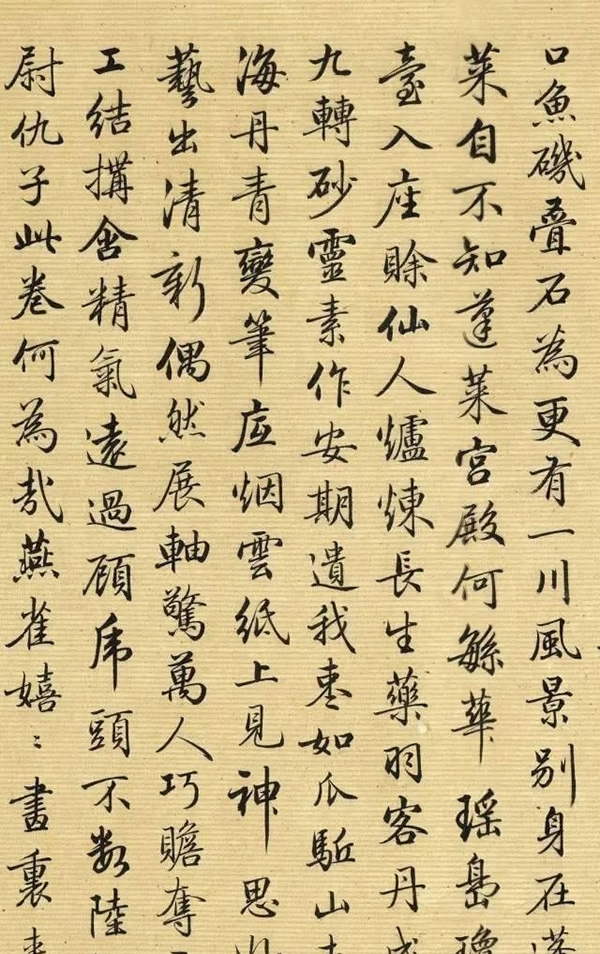 口魚磯疊石為更有一川風景別身在蓬
萊自不知蓬萊宮殿何緐華瑤島瓊
臺入座賒仙人爐煉長生藥羽客丹成
九轉砂靈素作安期遺我棗如瓜駈山
海丹青變筆底烟雲紙上見神思
藝出清新偶然展軸驚萬人巧贍奪
工結搆含精氣遠過顧虎頭不數陸
尉仇子此卷何為哉燕雀嬉〻畫裏